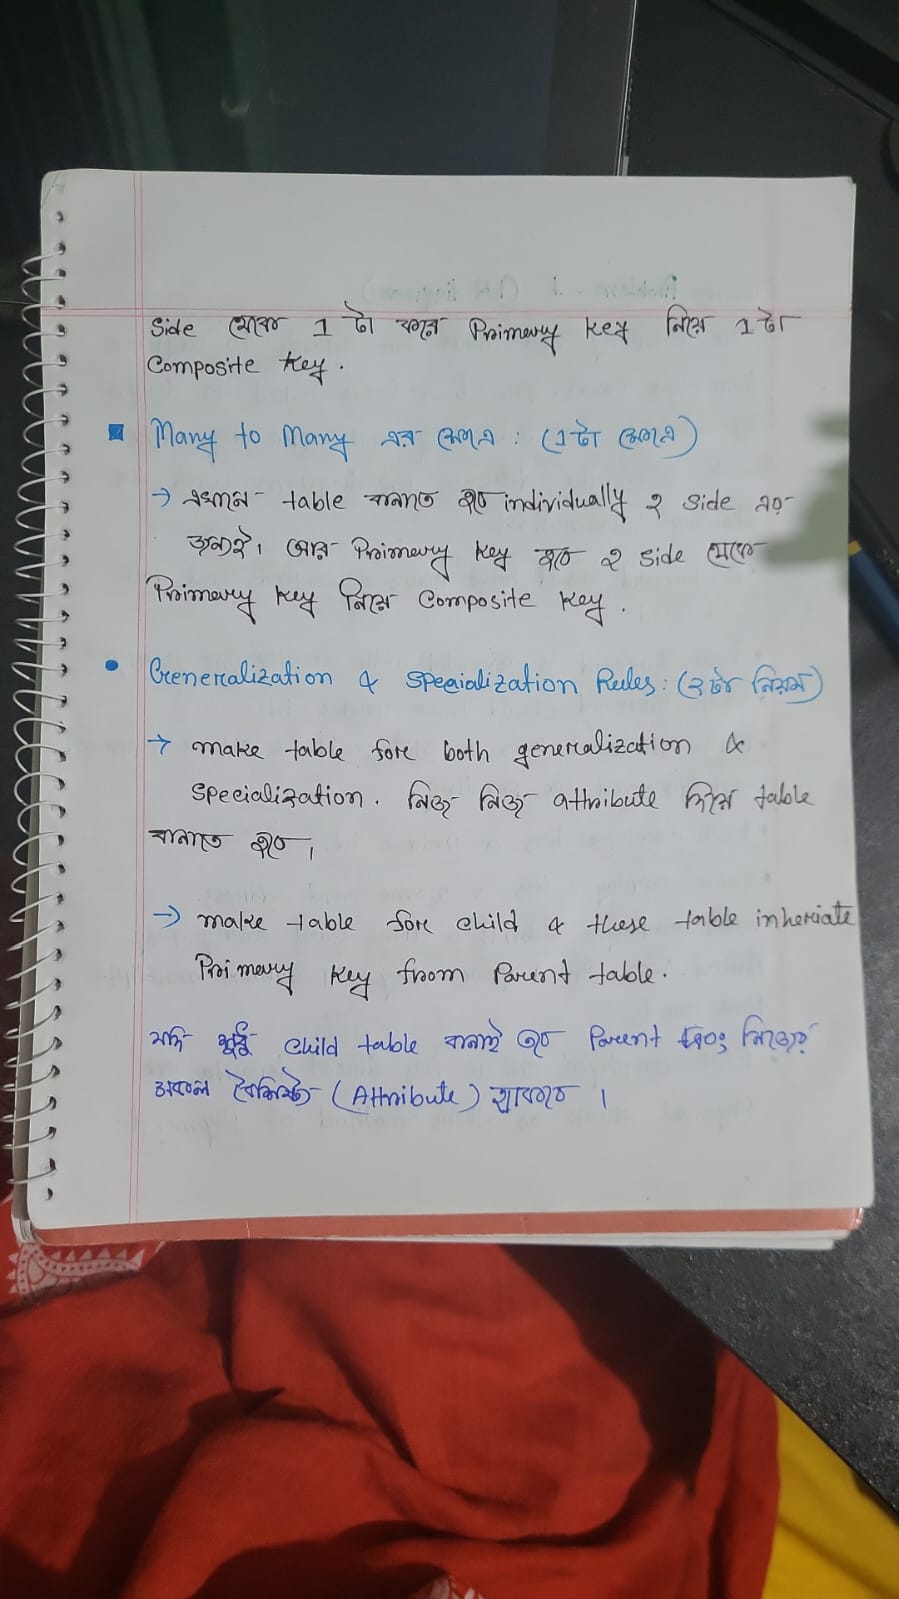 Side থেকে 1 টা করে Primery Key নিয়ে 1 টা
Composite Key.
Many to Many এর ক্ষেত্রে : (1 টা ক্ষেত্রে)
→ এখানে table বানাতে হবে individually ২ side এর
জন্যই। আর Primery Key হবে ২ side থেকে
Primery Key নিয়ে Composite Key.
Generalization & Specialization Rules: (২টা নিয়ম)
→ make table for both generalization &
Specialization. নিজ নিজ attribute নিয়ে table
বানাতে হবে।
→ make table for child & these table inheriate
Primery Key from Parent table.
যদি শুধু child table বানাই তবে Parent এবং নিজের
সকল বৈশিষ্ট্য (Attribute) থাকবে।